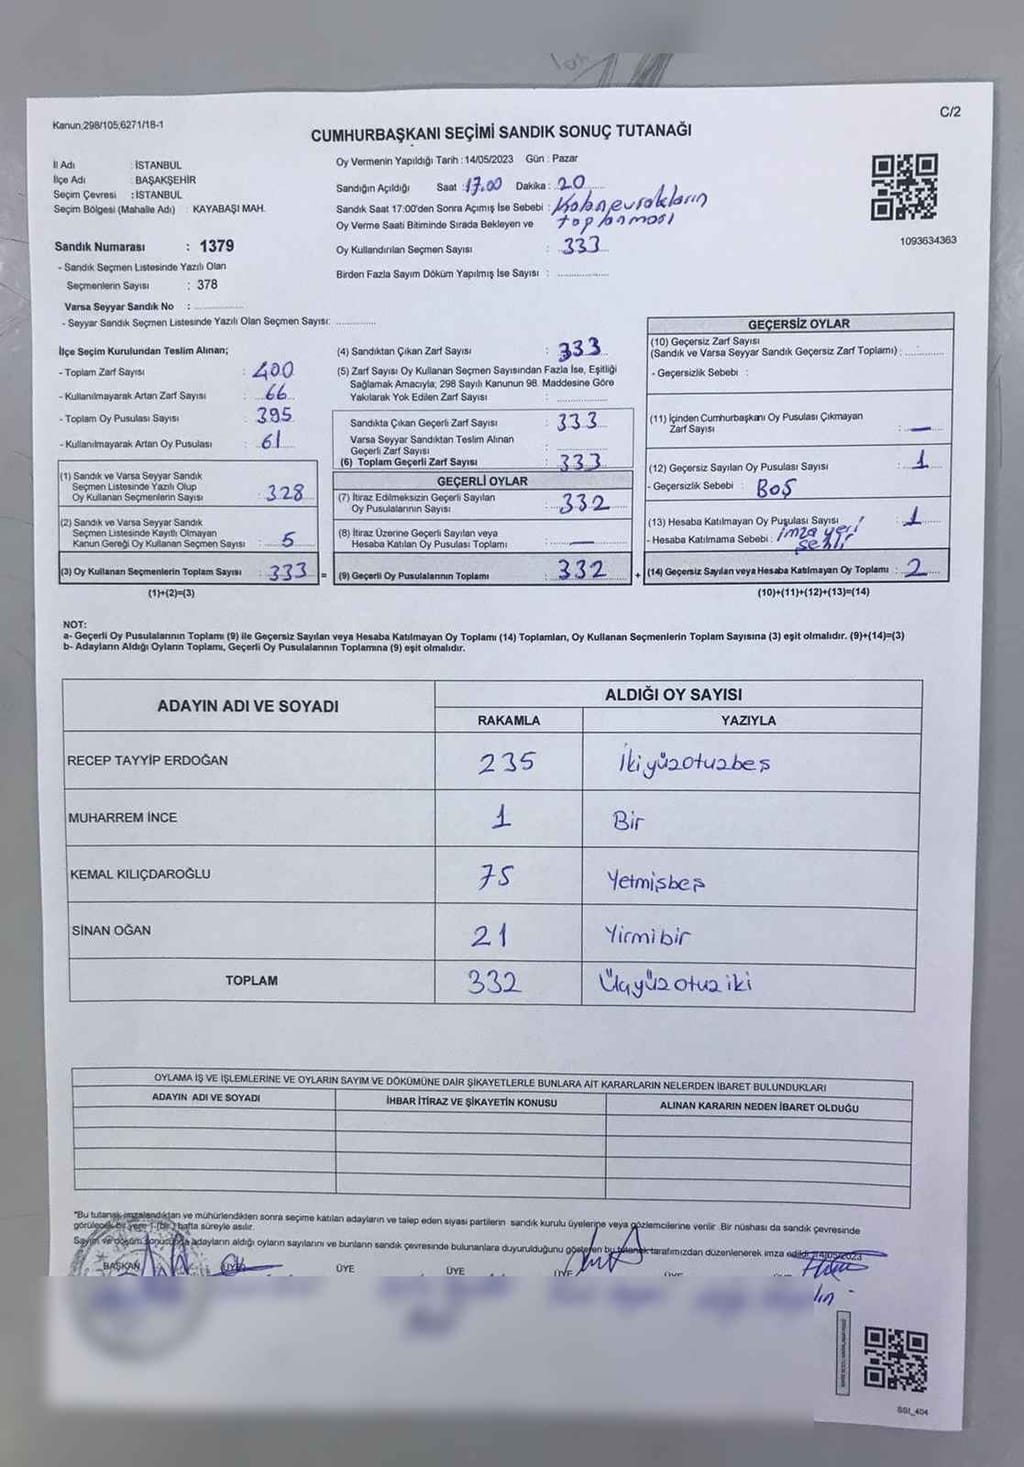 Kanun,298/105;6271/18-1
C/2
CUMHURBAŞKANI SEÇİMİ SANDIK SONUÇ TUTANAĞI
İl Adı : İSTANBUL
İlçe Adı : BAŞAKŞEHİR
Seçim Çevresi : İSTANBUL
Seçim Bölgesi (Mahalle Adı) : KAYABAŞI MAH.
Sandık Numarası : 1379
- Sandık Seçmen Listesinde Yazılı Olan
Seçmenlerin Sayısı : 378
Varsa Seyyar Sandık No :
- Seyyar Sandık Seçmen Listesinde Yazılı Olan Seçmen Sayısı:
Oy Vermenin Yapıldığı Tarih : 14/05/2023 Gün : Pazar
Sandığın Açıldığı Saat : 17.00 Dakika : 20
Sandık Saat 17:00'den Sonra Açımış İse Sebebi : evrakların
Oy Verme Saati Bitiminde Sırada Bekleyen ve toplanması
Oy Kullandırılan Seçmen Sayısı : 333
Birden Fazla Sayım Döküm Yapılmış İse Sayısı :
1093634363
İlçe Seçim Kurulundan Teslim Alınan;
- Toplam Zarf Sayısı : 400
- Kullanılmayarak Artan Zarf Sayısı : 66
- Toplam Oy Pusulası Sayısı : 395
- Kullanılmayarak Artan Oy Pusulası : 61
(1) Sandık ve Varsa Seyyar Sandık
Seçmen Listesinde Yazılı Olup
Oy Kullanan Seçmenlerin Sayısı : 328
(2) Sandık ve Varsa Seyyar Sandık
Seçmen Listesinde Kayıtlı Olmayan
Kanun Gereği Oy Kullanan Seçmen Sayısı : 5
(3) Oy Kullanan Seçmenlerin Toplam Sayısı : 333 =
(1)+(2)=(3)
(4) Sandıktan Çıkan Zarf Sayısı : 333
(5) Zarf Sayısı Oy Kullanan Seçmen Sayısından Fazla İse, Eşitliği
Sağlamak Amacıyla; 298 Sayılı Kanunun 98. Maddesine Göre
Yakılarak Yok Edilen Zarf Sayısı :
Sandıkta Çıkan Geçerli Zarf Sayısı : 333
Varsa Seyyar Sandıktan Teslim Alınan
Geçerli Zarf Sayısı :
(6) Toplam Geçerli Zarf Sayısı : 333
GEÇERLİ OYLAR
(7) İtiraz Edilmeksizin Geçerli Sayılan
Oy Pusulalarının Sayısı : 332
(8) İtiraz Üzerine Geçerli Sayılan veya
Hesaba Katılan Oy Pusulası Toplamı : —
(9) Geçerli Oy Pusulalarının Toplamı : 332 +
GEÇERSİZ OYLAR
(10) Geçersiz Zarf Sayısı
(Sandık ve Varsa Seyyar Sandık Geçersiz Zarf Toplamı) :
- Geçersizlik Sebebi :
(11) İçinden Cumhurbaşkanı Oy Pusulası Çıkmayan
Zarf Sayısı : —
(12) Geçersiz Sayılan Oy Pusulası Sayısı : 1
- Geçersizlik Sebebi : BOŞ
(13) Hesaba Katılmayan Oy Pusulası Sayısı : 1
- Hesaba Katılmama Sebebi : İmza yeri
(14) Geçersiz Sayılan veya Hesaba Katılmayan Oy Toplamı : 2
(10)+(11)+(12)+(13)=(14)
NOT:
a- Geçerli Oy Pusulalarının Toplamı (9) ile Geçersiz Sayılan veya Hesaba Katılmayan Oy Toplamı (14) Toplamları, Oy Kullanan Seçmenlerin Toplam Sayısına (3) eşit olmalıdır. (9)+(14)=(3)
b- Adayların Aldığı Oyların Toplamı, Geçerli Oy Pusulalarının Toplamına (9) eşit olmalıdır.
ADAYIN ADI VE SOYADI
ALDIĞI OY SAYISI
RAKAMLA YAZIYLA
RECEP TAYYİP ERDOĞAN 235 İkiyüzotuzbeş
MUHARREM İNCE 1 Bir
KEMAL KILIÇDAROĞLU 75 Yetmişbeş
SİNAN OĞAN 21 Yirmibir
TOPLAM 332 Üçyüzotuziki
OYLAMA İŞ VE İŞLEMLERİNE VE OYLARIN SAYIM VE DÖKÜMÜNE DAİR ŞİKAYETLERLE BUNLARA AİT KARARLARIN NELERDEN İBARET BULUNDUKLARI
ADAYIN ADI VE SOYADI İHBAR İTİRAZ VE ŞİKAYETİN KONUSU ALINAN KARARIN NEDEN İBARET OLDUĞU
"Bu tutanak imzalandıktan ve mühürlendikten sonra seçime katılan adayların ve talep eden siyasi partilerin sandık kurulu üyelerine veya gözlemcilerine verilir. Bir nüshası da sandık çevresinde
görülecek bir yere 1 (bir) hafta süreyle asılır.
Sayım ve döküm sonucunda adayların aldığı oyların sayılarını ve bunların sandık çevresinde bulunanlara duyurulduğunu gösteren bu tutanak tarafımızdan düzenlenerek imza edildi. 14/05/2023
BAŞKAN ÜYE ÜYE ÜYE ÜYE ÜYE